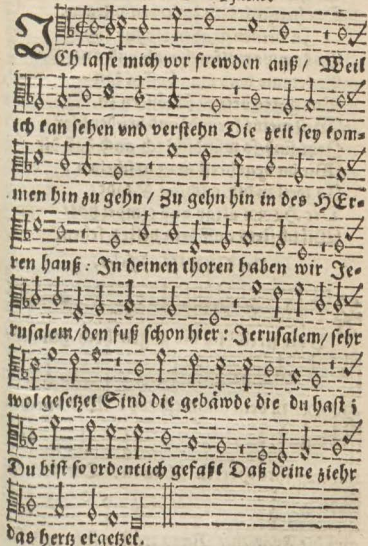 ICh lasse mich vor frewden auß / Weil
ich kan sehen vnd verstehn Die zeit sey kom-
men hin zu gehn / Zu gehn hin in des HEr-
ren hauß: In deinen thoren haben wir Je-
rusalem/den fuß schon hier: Jerusalem/ sehr
wol gesetzet Sind die gebäwde die du hast;
Du bist so ordentlich gefaßt Daß deine ziehr
das hertz ergetzet.